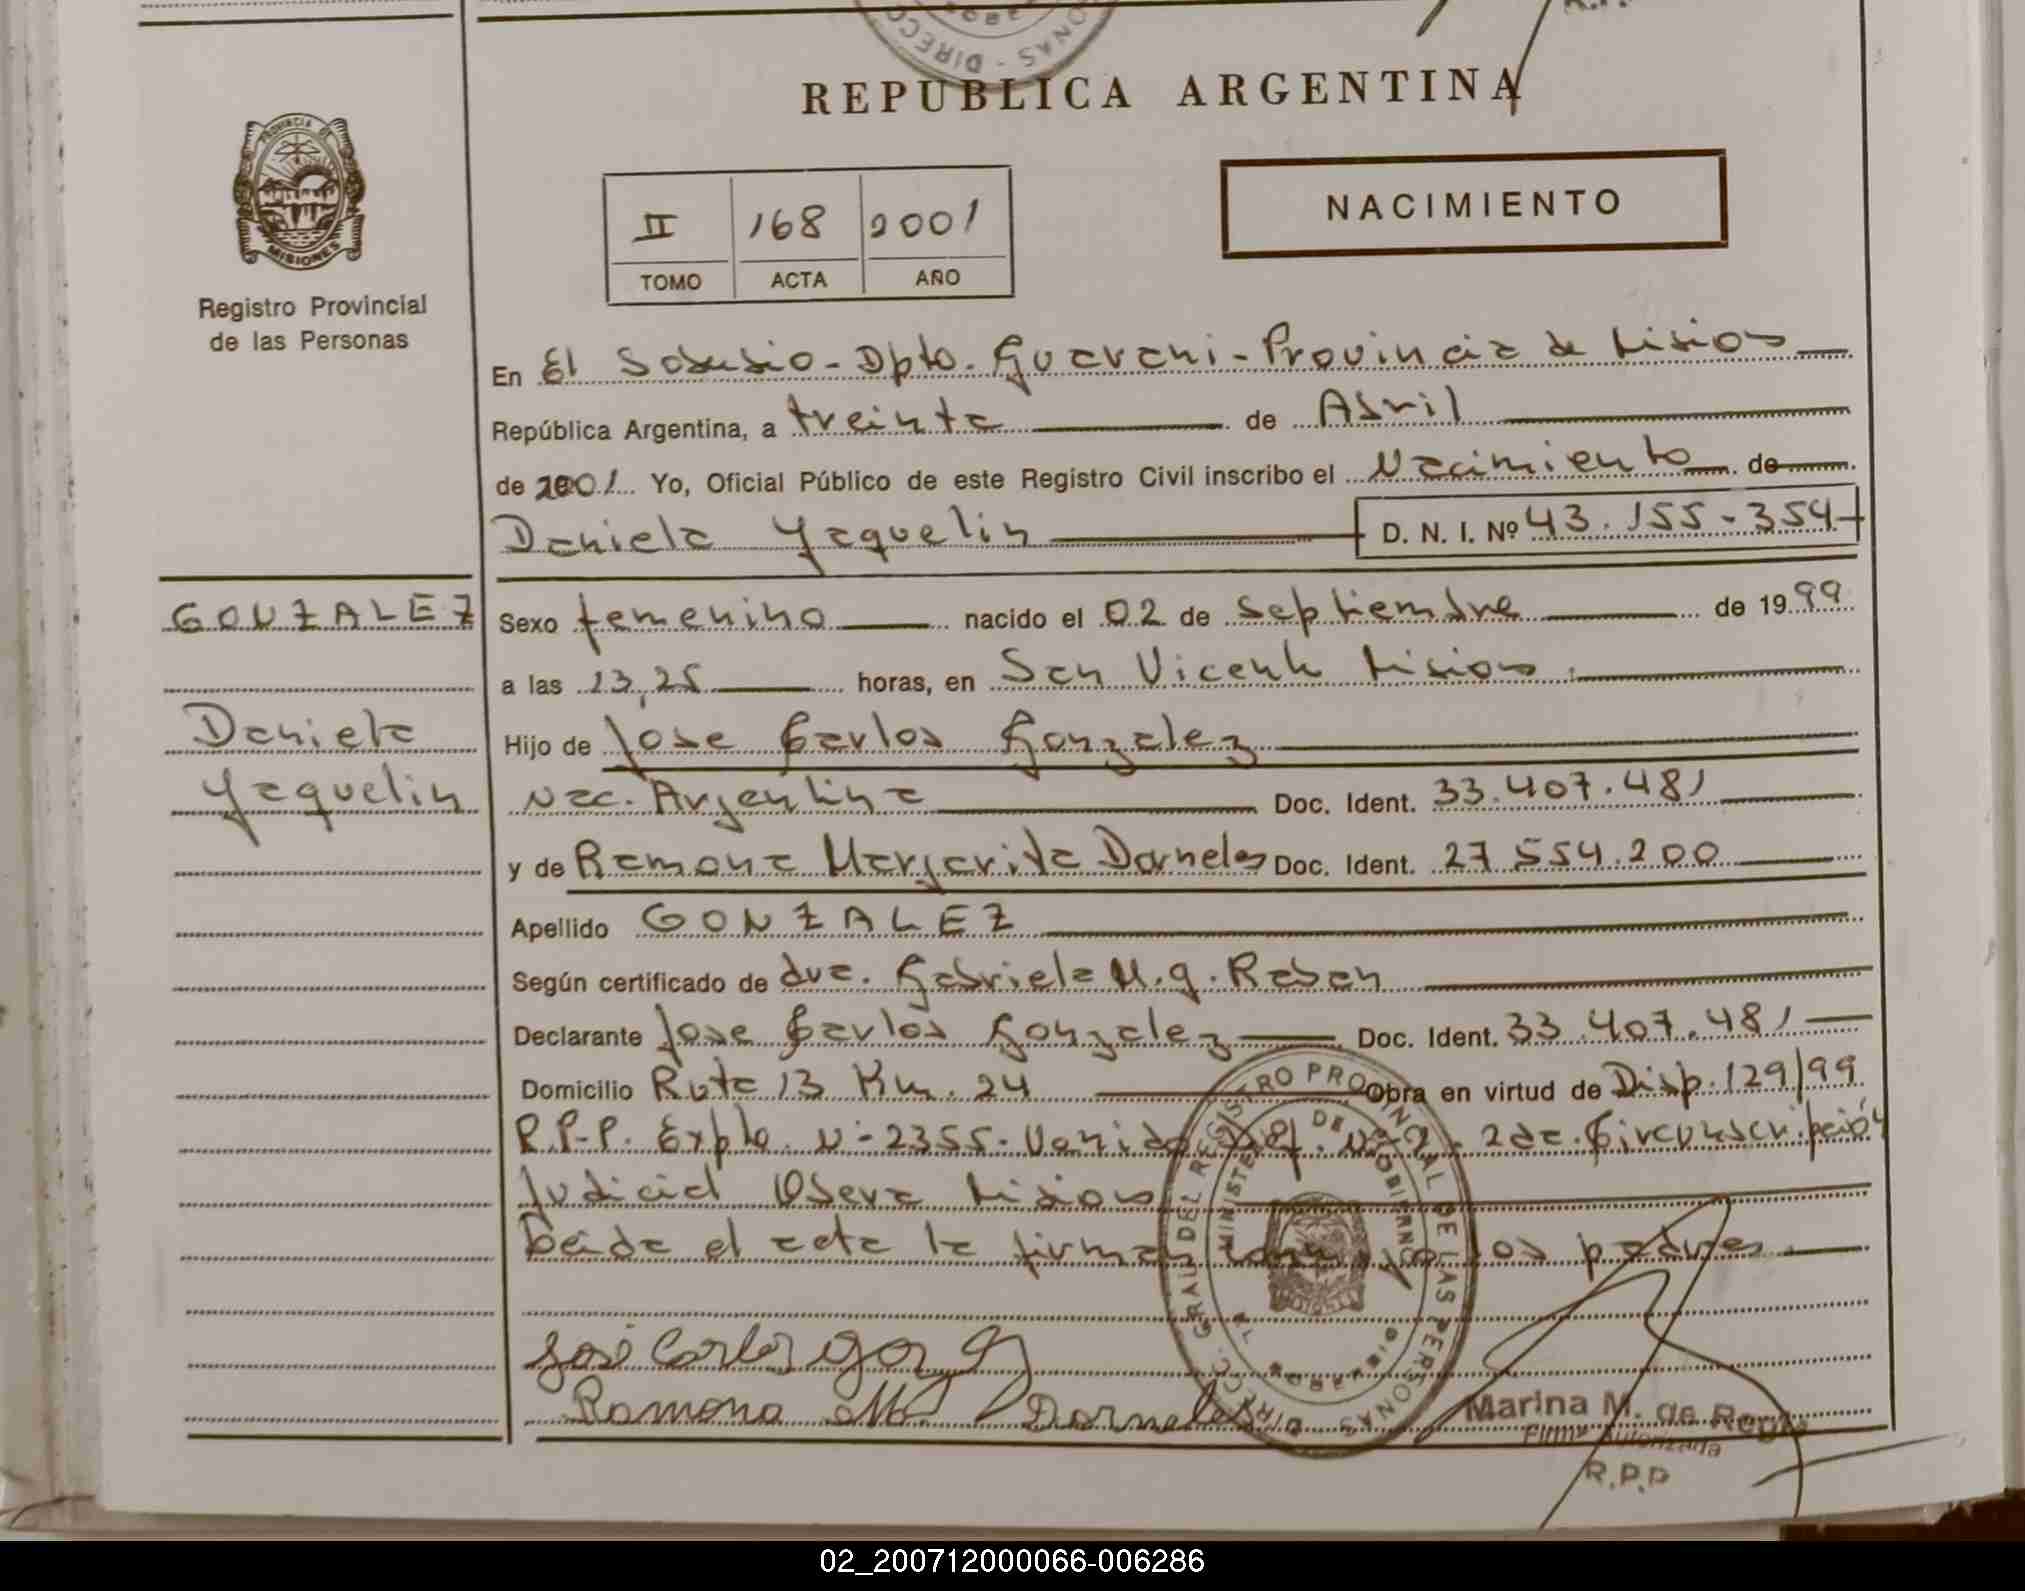 REPUBLICA ARGENTINA
NACIMIENTO
II 168 2001
TOMO ACTA AÑO
PROVINCIA DE
MISIONES
Registro Provincial
de las Personas
En El Soberbio - Dpto. Guarani - Provincia de Misiones
República Argentina, a treinta de Abril
de 2001 Yo, Oficial Público de este Registro Civil inscribo el Nacimiento de
Daniela Yaquelin D. N. I. Nº 43.155-354
GONZALEZ
Daniela
Yaquelin
Sexo femenino nacido el 02 de septiembre de 1999
a las 13,25 horas, en San Vicente Misiones.
Hijo de Jose Carlos Gonzalez
Nac. Argentina Doc. Ident. 33.407.481
y de Ramona Margarita Dorneles Doc. Ident. 27.554.200
Apellido GONZALEZ
Según certificado de dra. Gabriela M. g. Raban
Declarante Jose Carlos Gonzalez Doc. Ident. 33.407.481
Domicilio Ruta 13 Km. 24 Obra en virtud de Disp. 129/99
R.P.P. Expte. Nº 2355- Nº 2. 2da. Circunscripción
Judicial Obera Misiones
Leida el acta la firman los padres.
José Carlos
Ramona Dorneles
Marina M. de
Firma Autorizada
R.P.P
02_200712000066-006286